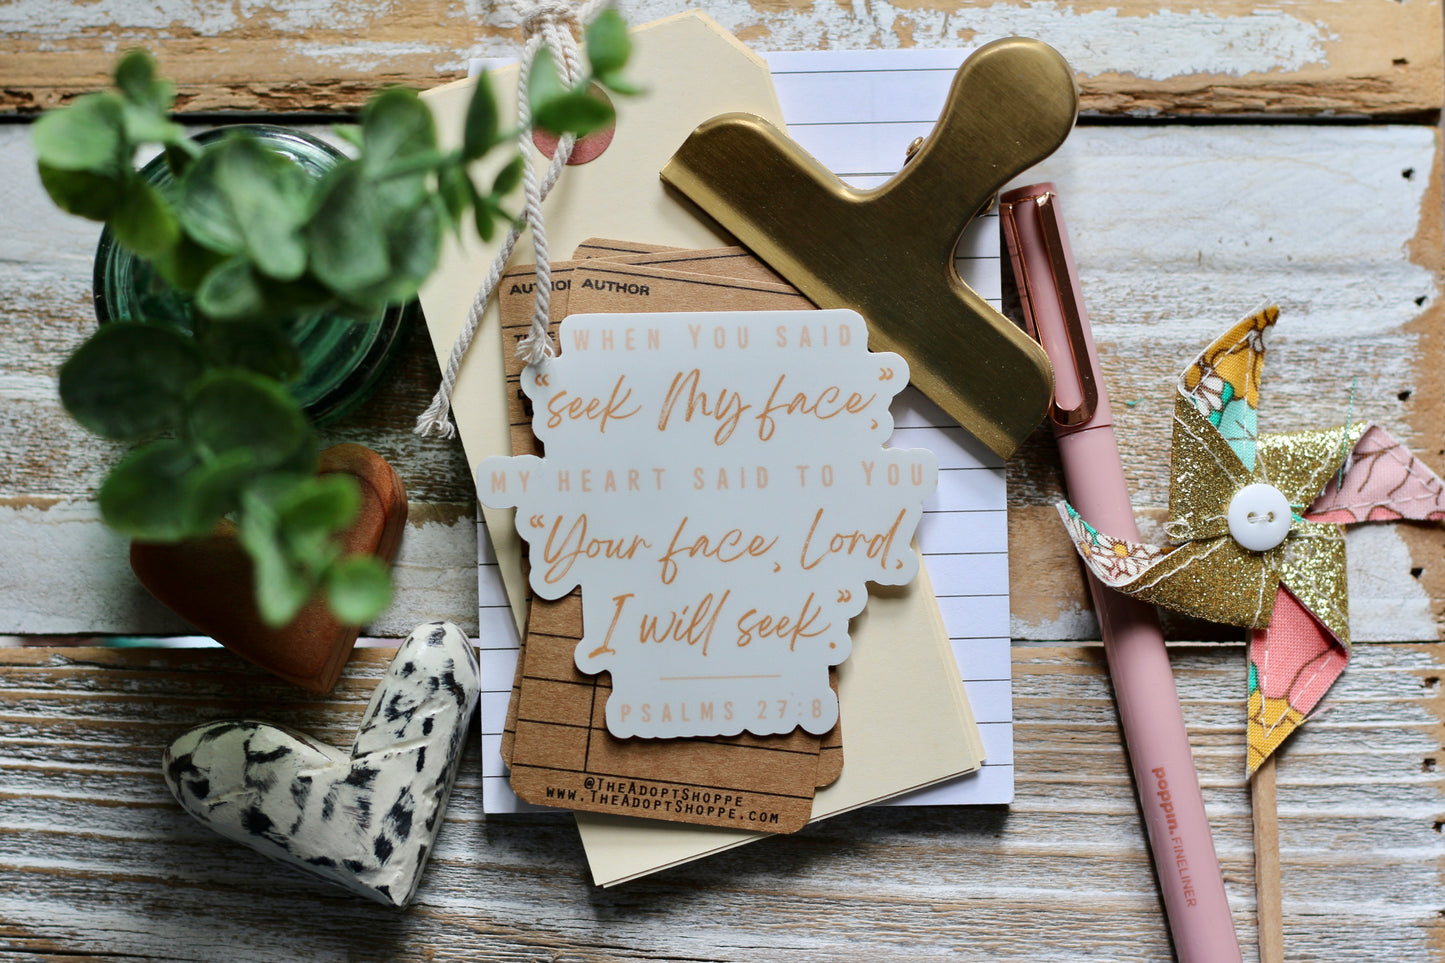 AUTHOR
AUTHOR
WHEN YOU SAID
“seek My face,”
MY HEART SAID TO YOU,
“Your face, Lord,
I will seek.”
PSALMS 27:8
@TheAdoptShoppe
www.TheAdoptShoppe.com
poppin. FINELINER